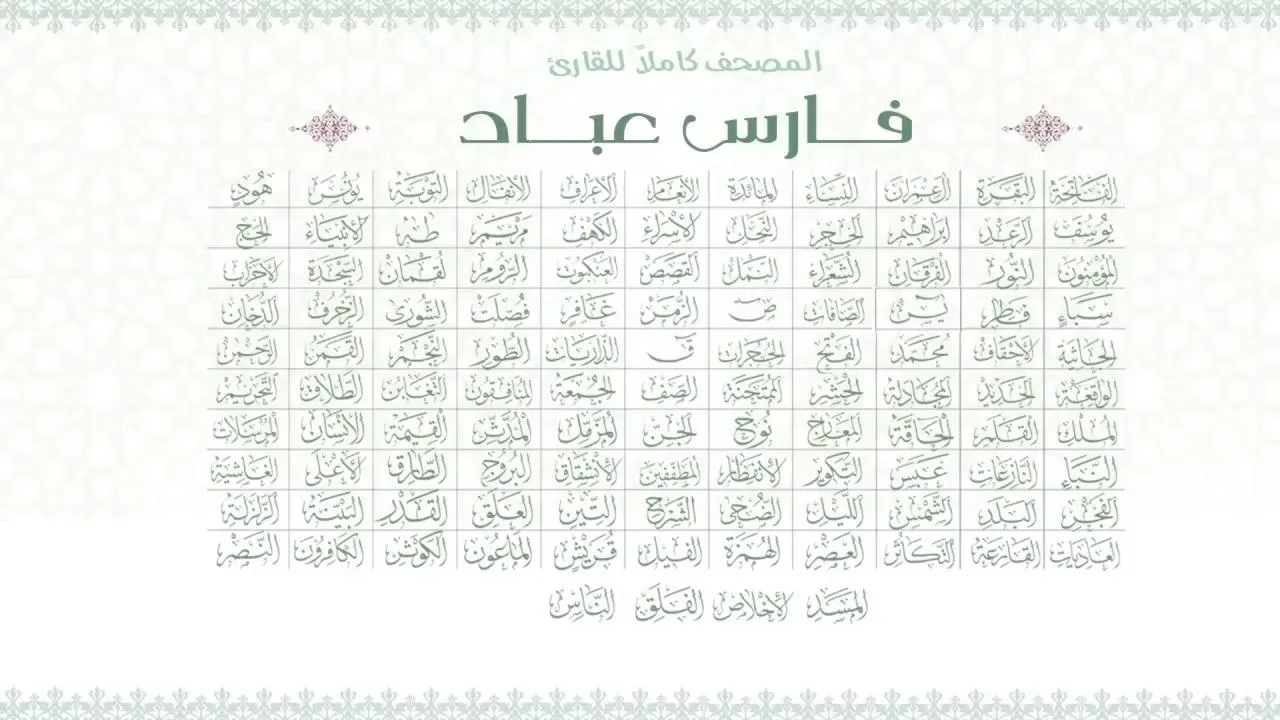 المصحف كاملاً للقارئ
فارس عباد
الفاتحة البقرة آل عمران النساء المائدة الأنعام الأعراف الأنفال التوبة يونس هود
يوسف الرعد إبراهيم الحجر النحل الإسراء الكهف مريم طه الأنبياء الحج
المؤمنون النور الفرقان الشعراء النمل القصص العنكبوت الروم لقمان السجدة الأحزاب
سبأ فاطر يس الصافات ص الزمر غافر فصلت الشورى الزخرف الدخان
الجاثية الأحقاف محمد الفتح الحجرات ق الذاريات الطور النجم القمر الرحمن
الواقعة الحديد المجادلة الحشر الممتحنة الصف الجمعة المنافقون التغابن الطلاق التحريم
الملك القلم الحاقة المعارج نوح الجن المزمل المدثر القيامة الإنسان المرسلات
النبإ النازعات عبس التكوير الانفطار المطففين الانشقاق البروج الطارق الأعلى الغاشية
الفجر البلد الشمس الليل الضحى الشرح التين العلق القدر البينة الزلزلة
العاديات القارعة التكاثر العصر الهمزة الفيل قريش الماعون الكوثر الكافرون النصر
المسد الإخلاص الفلق الناس